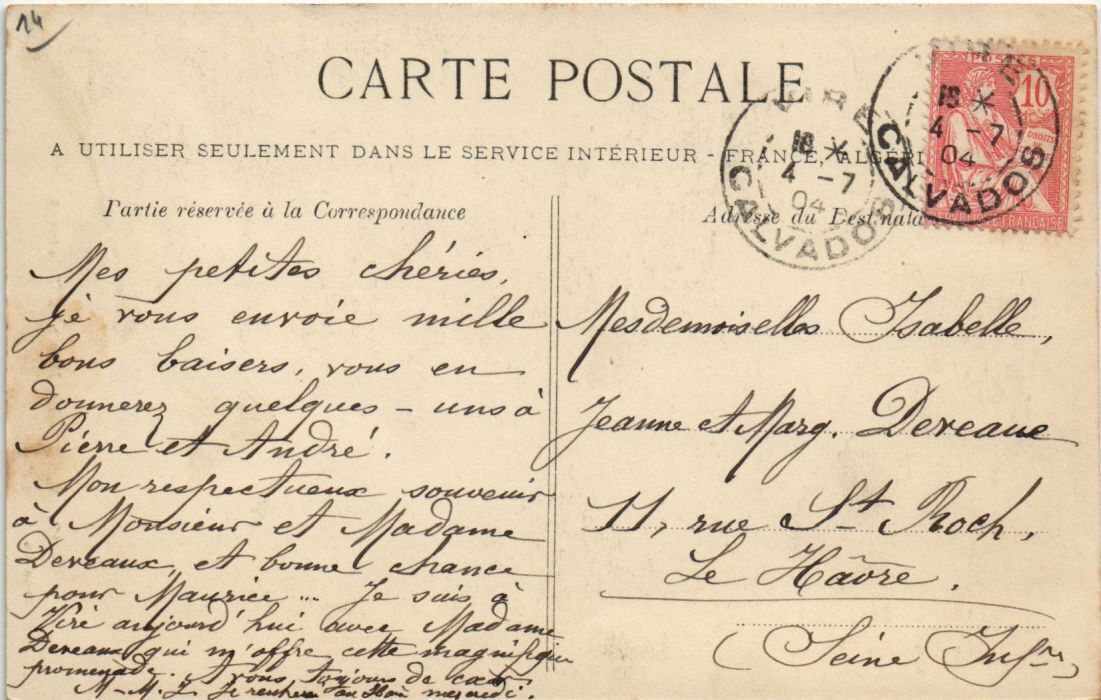 14
CARTE POSTALE
A UTILISER SEULEMENT DANS LE SERVICE INTÉRIEUR - FRANCE, ALGÉRI
Partie réservée à la Correspondance
Mes petites chéries,
je vous envoie mille
bons baisers, vous en
donnerez quelques-uns à
Pierre et André.
Mon respectueux souvenir
à Monsieur et Madame
Devaux, et bonne chance
pour Maurice... Je suis à
Vire aujourd'hui avec Madame
Deveaux qui m'offre cette magnifique
promenade. A vous, toujours de cœur
M-M. L. Je au mercredi.
Adresse du Destinata
Mesdemoiselles Isabelle,
Jeanne et Marg. Deveaux
11, rue St Roch,
Le Hâvre.
(Seine Infre)
VIRE
18 *
4 -7
04
CALVADOS
VIRE
18 *
4 -7
04
CALVADOS
POSTES
10
DROITS
RÉPUBLIQUE FRANÇAISE